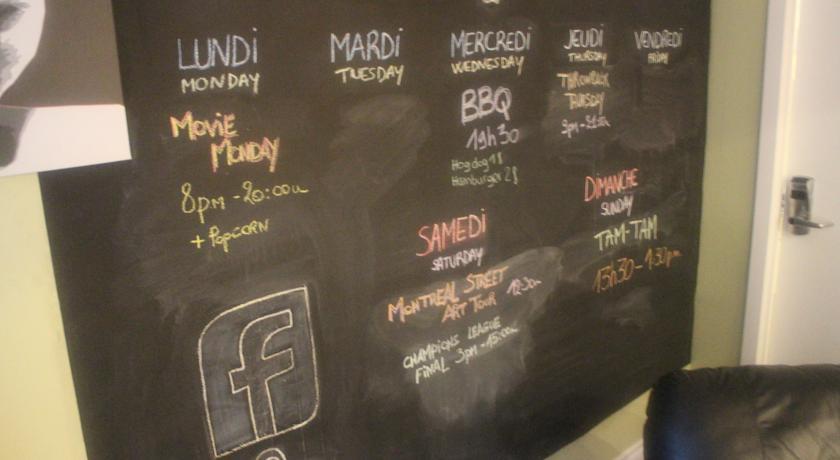 LUNDI
MONDAY
MOVIE
MONDAY
8pm - 20:00
+ POPCORN
MARDI
TUESDAY
MERCREDI
WEDNESDAY
BBQ
19h30
Hogdog 1$
Hamburger 2$
JEUDI
THURSDAY
THROWBACK
9pm - 21:00
VENDREDI
FRIDAY
SAMEDI
SATURDAY
MONTREAL STREET
ART TOUR
CHAMPIONS LEAGUE
FINAL 3pm - 15:00
DIMANCHE
SUNDAY
TAM-TAM
13h30 - 1:30pm
f